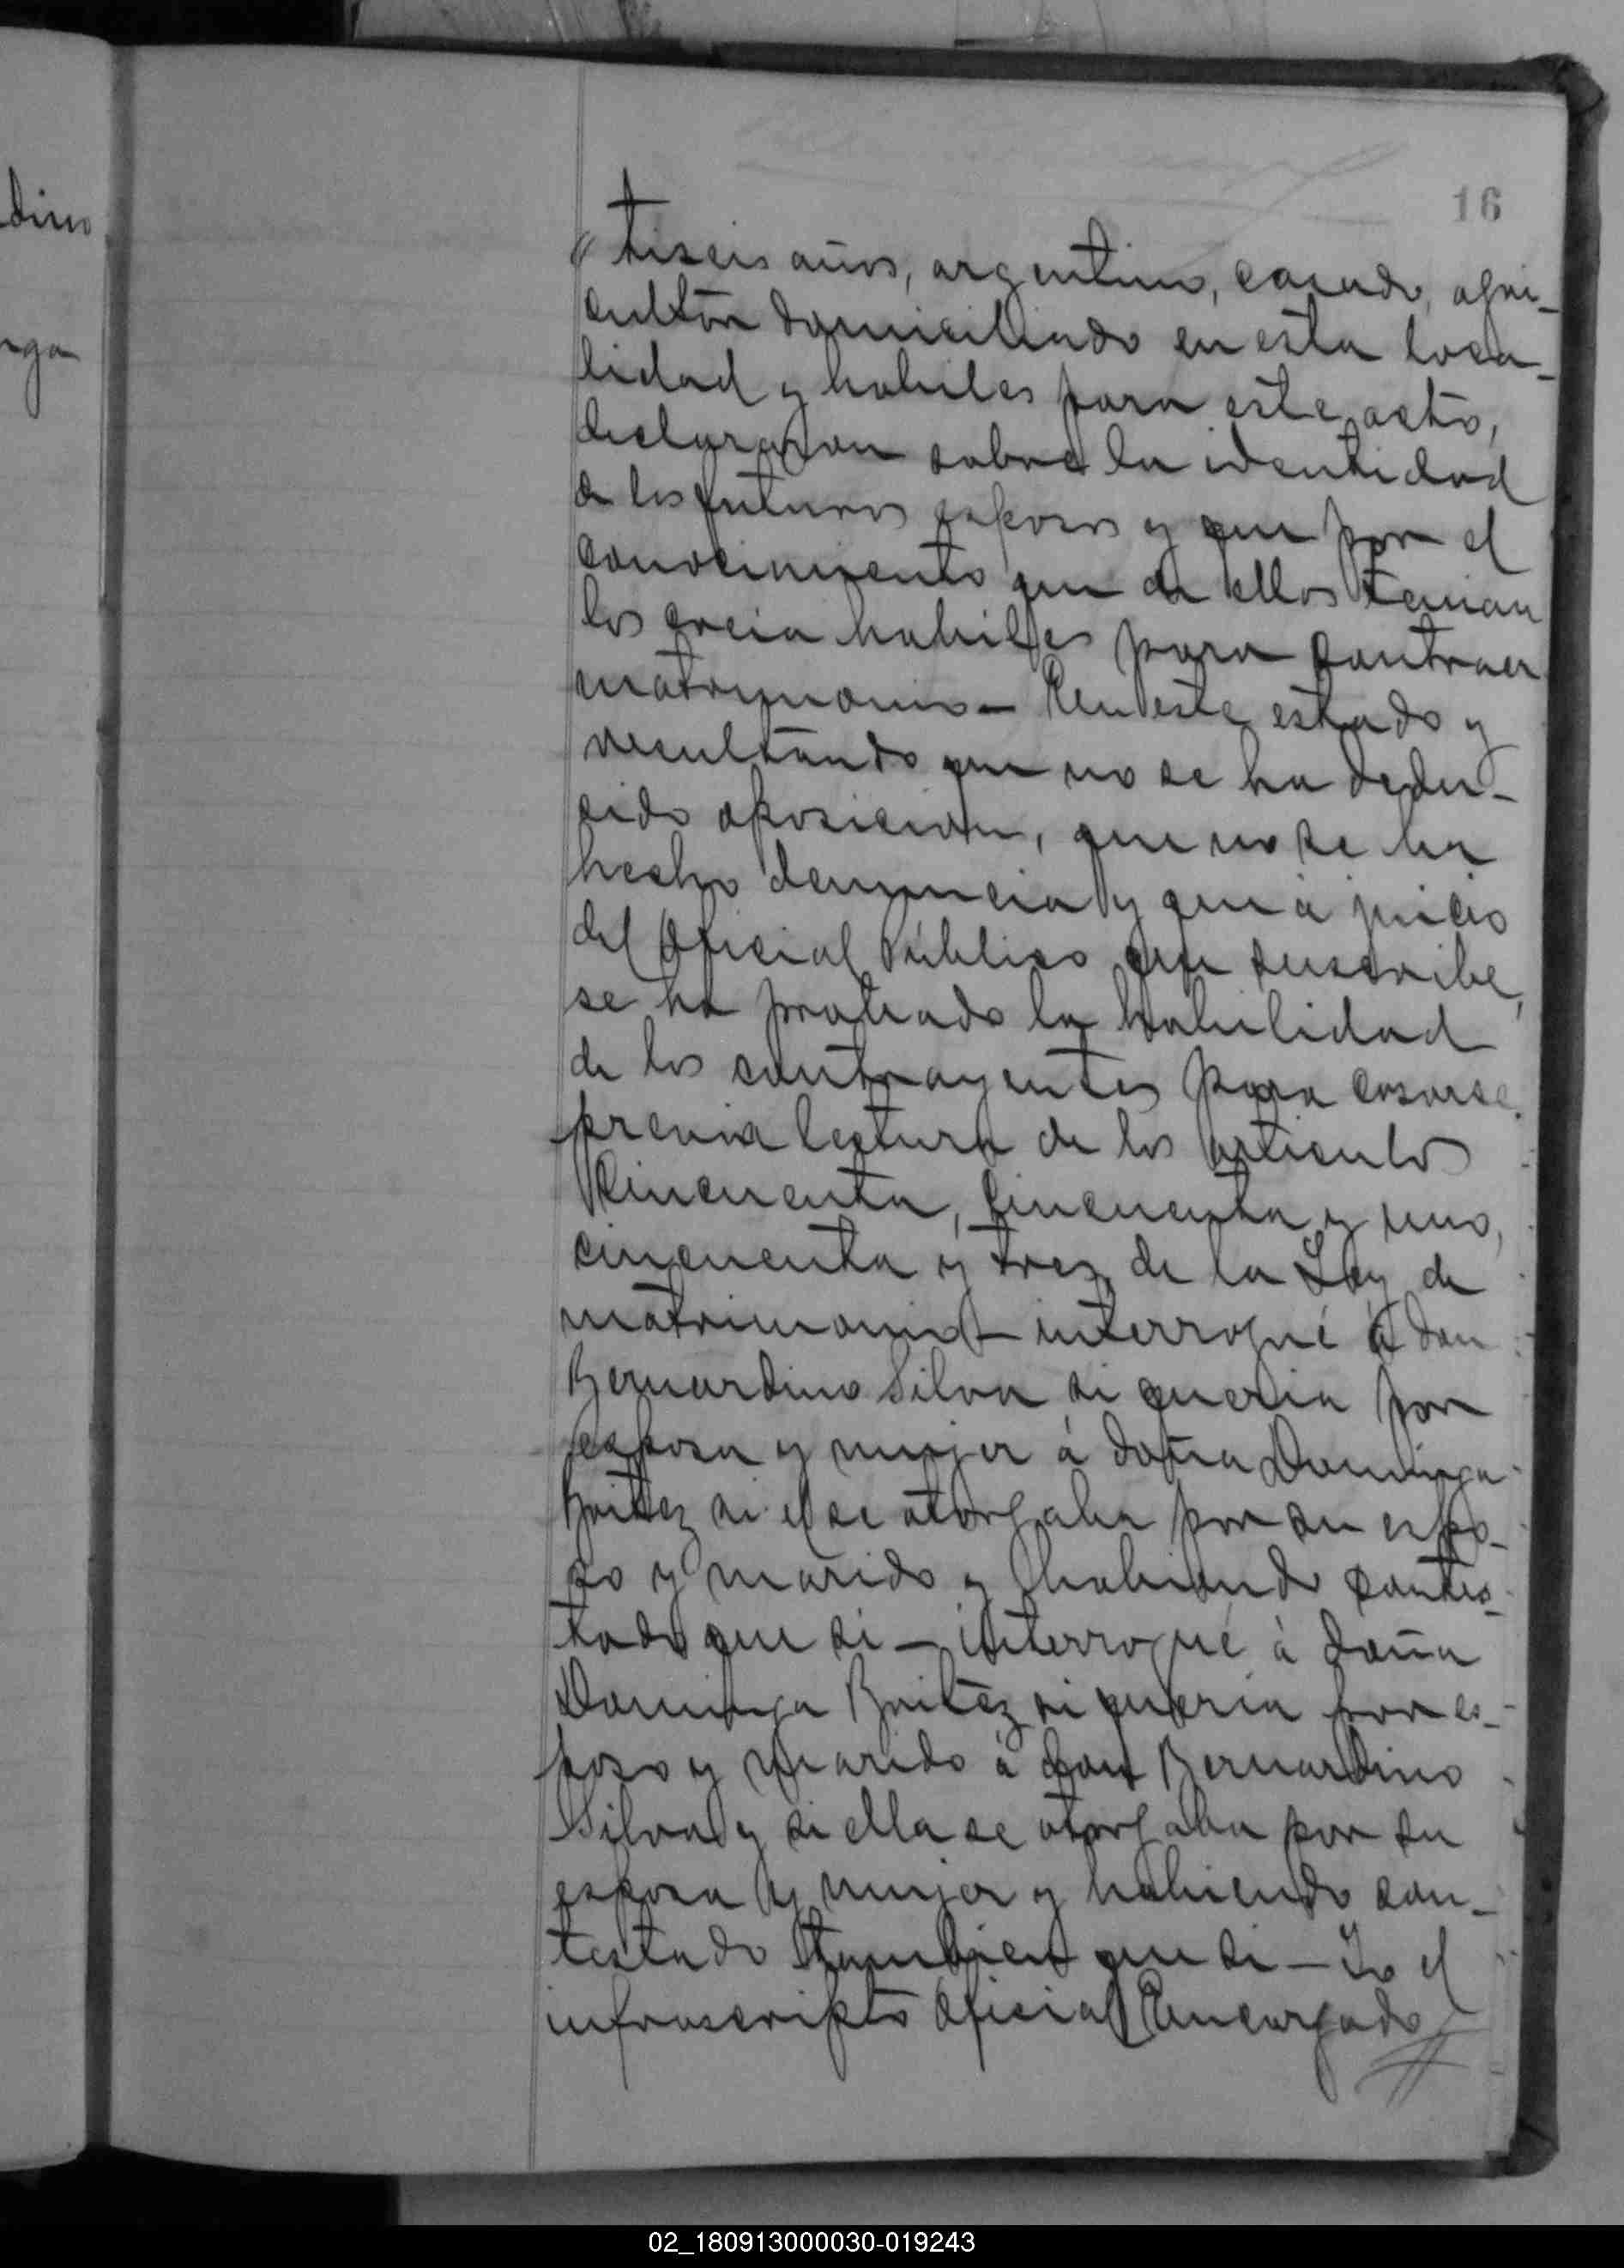 dino
nga
16
"tiseis años, argentino, casado, agri-
cultor domiciliado en esta loca-
lidad y habiles para este acto,
declararon sobre la identidad
de los futuros esposos y que por el
conocimiento que de ellos tenian
los creia habiles para contraer
matrimonio - En este estado y
resultando que no se ha dedu-
cido oposicion, que no se ha
hecho denuncia y que á juicio
del Oficial Público que suscribe,
se ha probado la habilidad
de los contrayentes para casarse,
previa lectura de los articulos
Cincuenta, cincuenta y uno,
cincuenta y tres, de la Ley de
matrimonio - interrogué á don
Bernardino Silva si queria por
esposa y mujer á doña Dominga
Baitez si el se otorgaba por su espo-
so y marido y habiendo contes-
tado que si - interrogué á doña
Dominga Baitez si queria por es-
poso y marido á don Bernardino
Silva y si ella se otorgaba por su
esposa y mujer y habiendo con-
testado tambien que si - Yo el
infrascripto Oficial Encargado
02_180913000030-019243